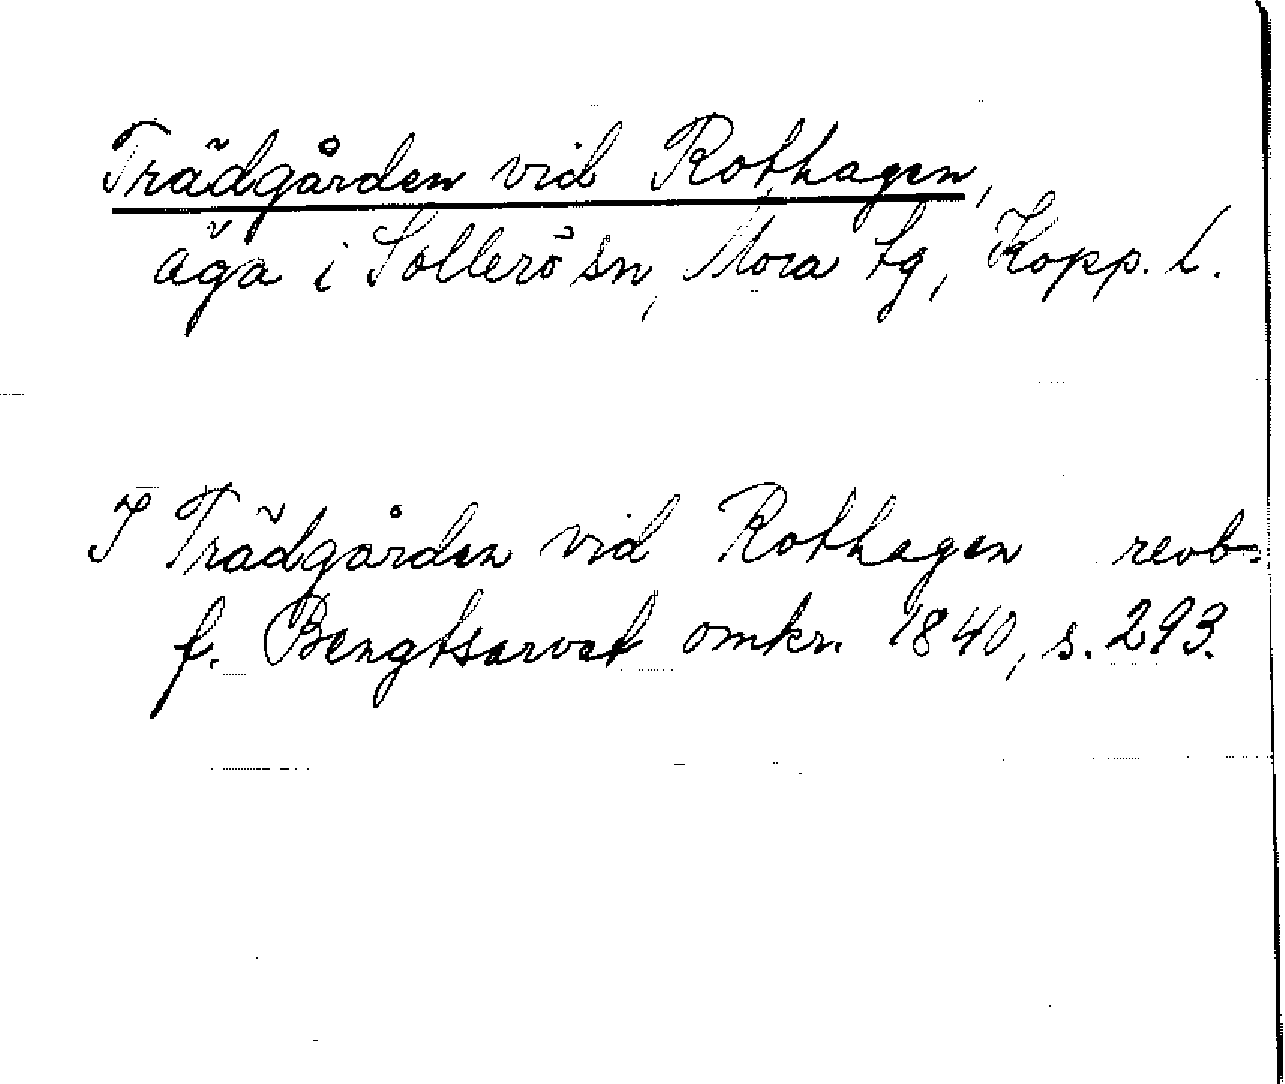 Trädgården vid Rothagen,
äga i Sollerö sn, Mora tg, Kopp. L.
I Trädgården vid Rothagen revb
f. Bengtsarvet omkr. 1840, s. 293.